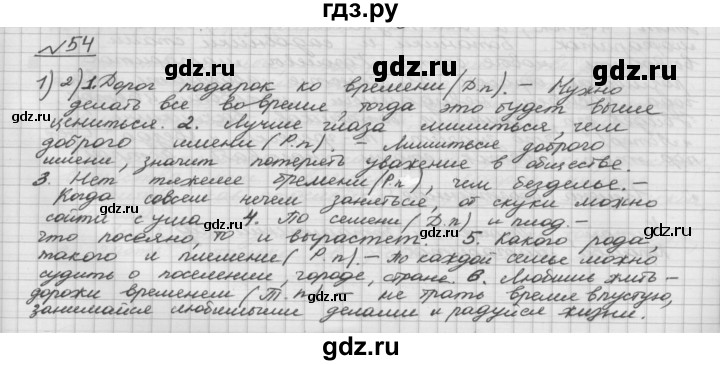 гдз.ру
№54
1) 2) 1. Дорог подарок ко времени (Д.п). – Нужно
делать все вовремя, тогда это будет выше
цениться. 2. Лучше глаза лишиться, чем
доброго имени (Р.п). – Лишиться доброго
имени, значит потерять уважение в обществе.
3. Нет тяжелее бремени (Р.п), чем безделье. –
Когда совсем нечем заняться, от скуки можно
сойти с ума. 4. По семени (Д.п) и плод. –
что посеяно, то и вырастет. 5. Какого рода,
такого и племени (Р.п). – по каждой семье можно
судить о поселении, городе, стране. 6. Любишь жить –
дорожи временем (Т.п) – не трать время впустую,
занимайся любимыми делами и радуйся жизни.
gdz.ru gdz.ru
gdz.ru gdz.ru
gdz.ru gdz.ru
gdz.ru gdz.ru
gdz.ru gdz.ru
gdz.ru gdz.ru